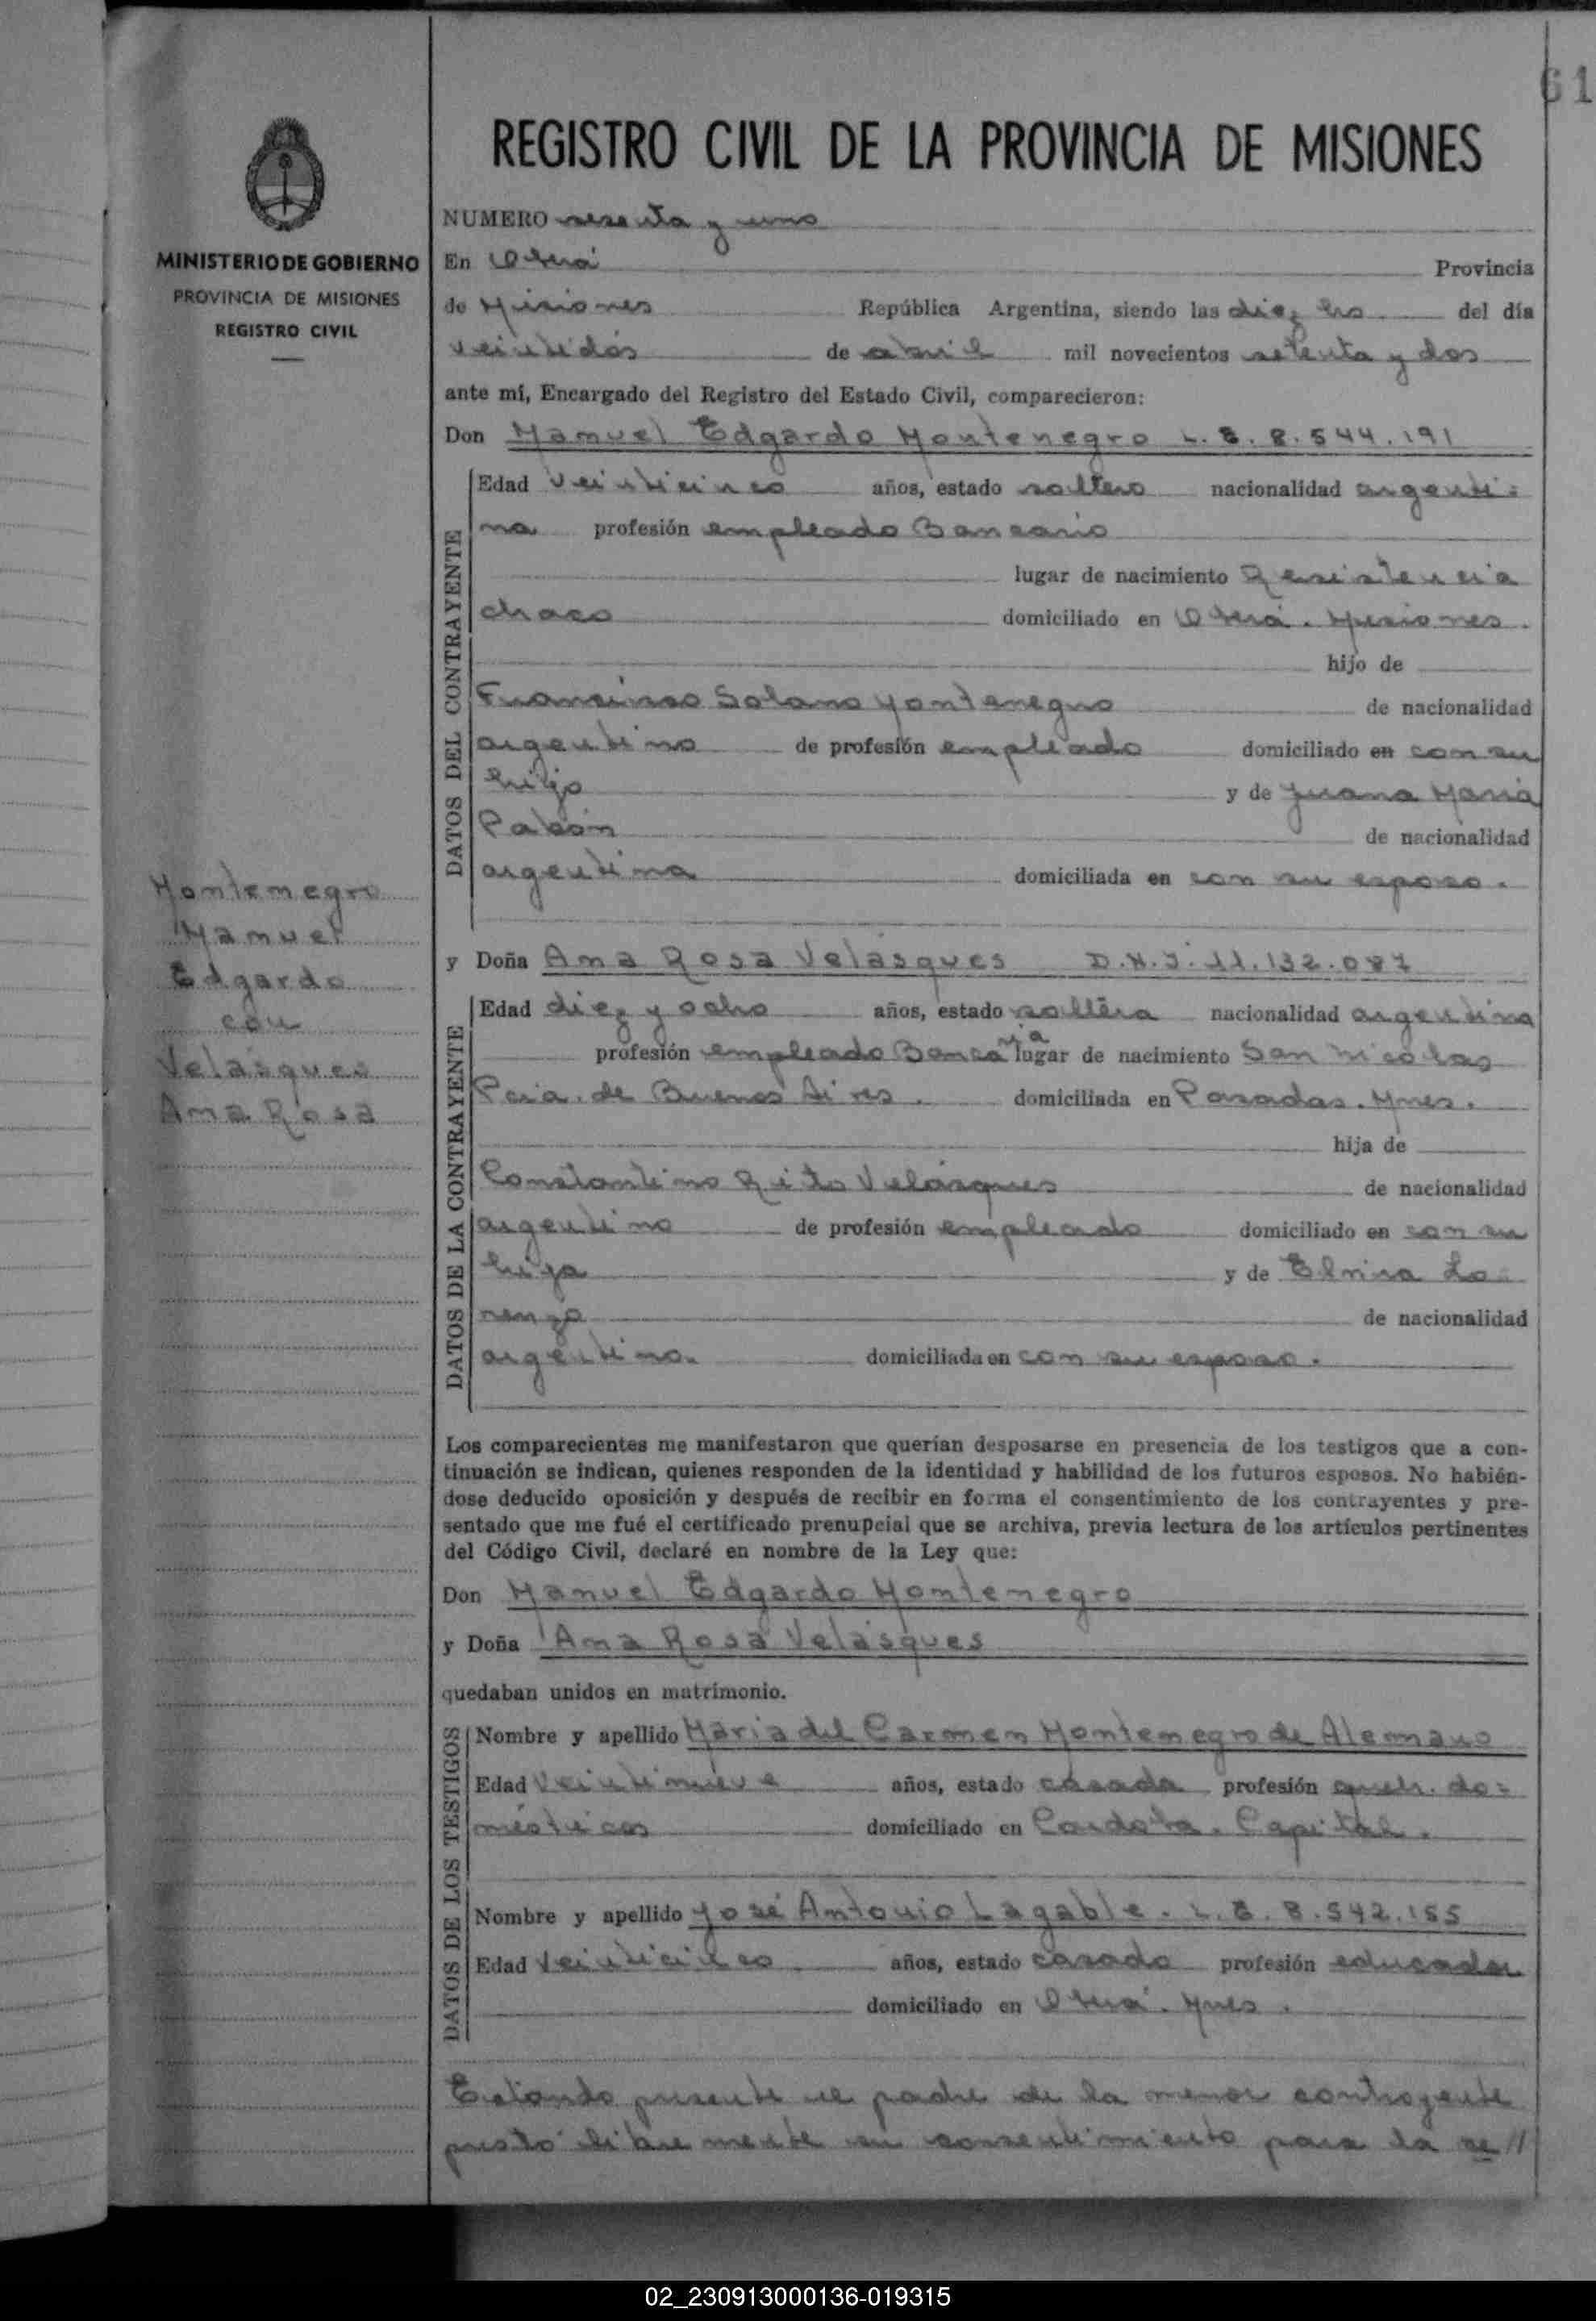 61
REGISTRO CIVIL DE LA PROVINCIA DE MISIONES
MINISTERIO DE GOBIERNO
PROVINCIA DE MISIONES
REGISTRO CIVIL
NUMERO sesenta y uno
En Oberá Provincia
de Misiones República Argentina, siendo las diez hs del día
veintidós de abril mil novecientos setenta y dos
ante mí, Encargado del Registro del Estado Civil, comparecieron:
Don Manuel Edgardo Montenegro L.E. 8.544.191
DATOS DEL CONTRAYENTE
Edad veinticinco años, estado soltero nacionalidad argenti=
na profesión empleado Bancario
lugar de nacimiento Resistencia
Chaco domiciliado en Oberá. Misiones.
hijo de
Francisco Solano Montenegro de nacionalidad
argentino de profesión empleado domiciliado en con su
hijo y de Juana María
Pabón de nacionalidad
argentina domiciliada en con su esposo.
Montenegro
Manuel
Edgardo
con
Velásques
Ana Rosa
y Doña Ana Rosa Velásques D.N.I. 11.132.087
DATOS DE LA CONTRAYENTE
Edad diez y ocho años, estado soltera nacionalidad argentina
profesión empleado Bancaria lugar de nacimiento San Nicolas
Pcia. de Buenos Aires. domiciliada en Posadas. Mnes.
hija de
Constantino Rito Velásques de nacionalidad
argentino de profesión empleado domiciliado en con su
hija y de Elvira Lo
renzo de nacionalidad
argentina. domiciliada en con su esposo.
Los comparecientes me manifestaron que querían desposarse en presencia de los testigos que a con-
tinuación se indican, quienes responden de la identidad y habilidad de los futuros esposos. No habién-
dose deducido oposición y después de recibir en forma el consentimiento de los contrayentes y pre-
sentado que me fué el certificado prenupcial que se archiva, previa lectura de los artículos pertinentes
del Código Civil, declaré en nombre de la Ley que:
Don Manuel Edgardo Montenegro
y Doña Ana Rosa Velásques
quedaban unidos en matrimonio.
DATOS DE LOS TESTIGOS
Nombre y apellido María del Carmen Montenegro de Alemano
Edad veintinueve años, estado casada profesión queh. do=
mésticos domiciliado en Cordoba. Capital.
Nombre y apellido José Antonio Lagable. L.E. 8.542.155
Edad veinticinco años, estado casado profesión educador
domiciliado en Oberá. Mnes.
Estando presente el padre de la menor contrayente
prestó libremente su consentimiento para la ce//
02_230913000136-019315